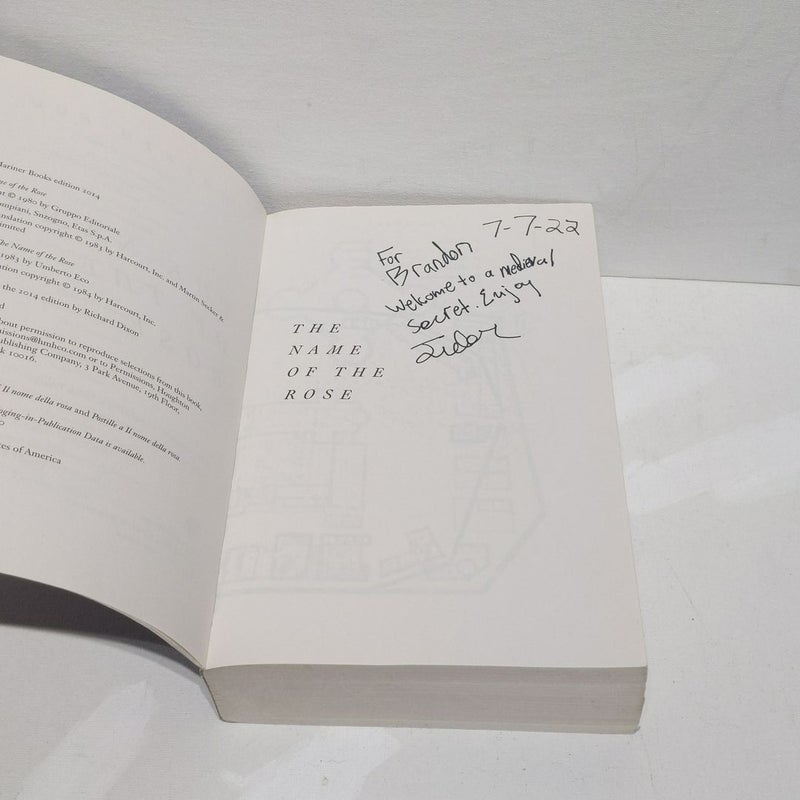 Mariner Books edition 2014
of the Rose
© 1980 by Gruppo Editoriale
Bompiani, Snzogno, Etas S.p.A.
translation copyright © 1983 by Harcourt, Inc. and Martin Secker &
The Name of the Rose
1983 by Umberto Eco
copyright © 1984 by Harcourt, Inc.
the 2014 edition by Richard Dixon
about permission to reproduce selections from this book,
or to Permissions, Houghton
Publishing Company, 3 Park Avenue, 19th Floor,
10016.
Il nome della rosa and Postille a Il nome della rosa.
Data is available.
of America
7-7-22
For
Brandon
Welcome to a medieval
secret. Enjoy
THE
NAME
OF THE
ROSE